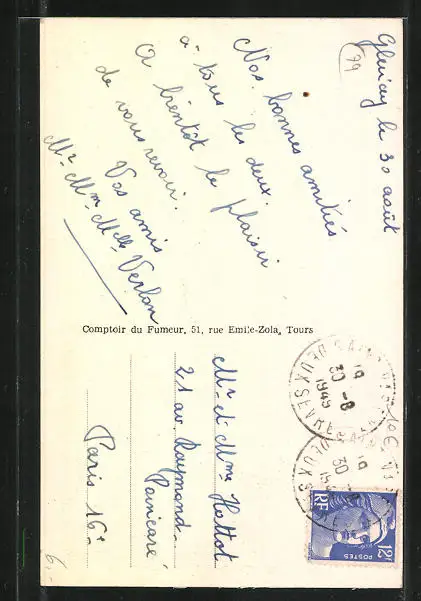 le 30 août
(79)
Nos bonnes amitiés
à tous les deux.
A bientôt le plaisir
de vous revoir.
Vos amis
Mr Mme Mlle Verlon
Comptoir du Fumeur, 51, rue Emile-Zola, Tours
Mr et Mme Hottot
21 av. Raymond-
Poincaré
Paris 16e
30 -8
1949
DEUX SEVRES
30
RF
12F
POSTES
6,-